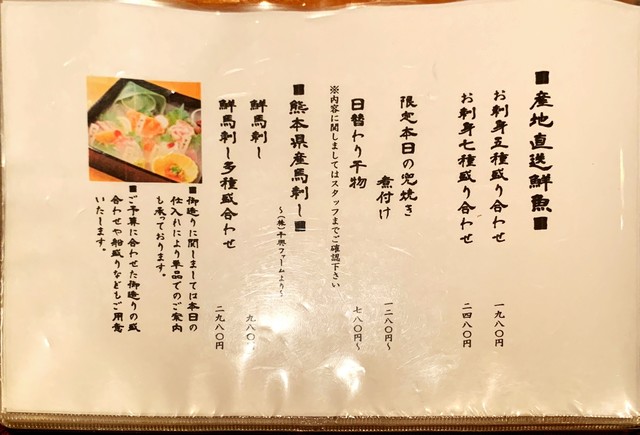 ■産地直送鮮魚■
お刺身五種盛り合わせ 一九八〇円
お刺身七種盛り合わせ 二四八〇円
限定本日の兜焼き
煮付け 一二八〇円〜
日替わり干物 七八〇円〜
※内容に関しましてはスタッフまでご確認下さい
■熊本県産馬刺し■
〜(株)千興ファームより〜
鮮馬刺し 九八〇円
鮮馬刺し多種盛合わせ 二九八〇円
■御造りに関しましては本日の
仕入れにより単品でのご案内
も承っております。
■ご予算に合わせた御造りの盛
合わせや船盛りなどもご用意
いたします。